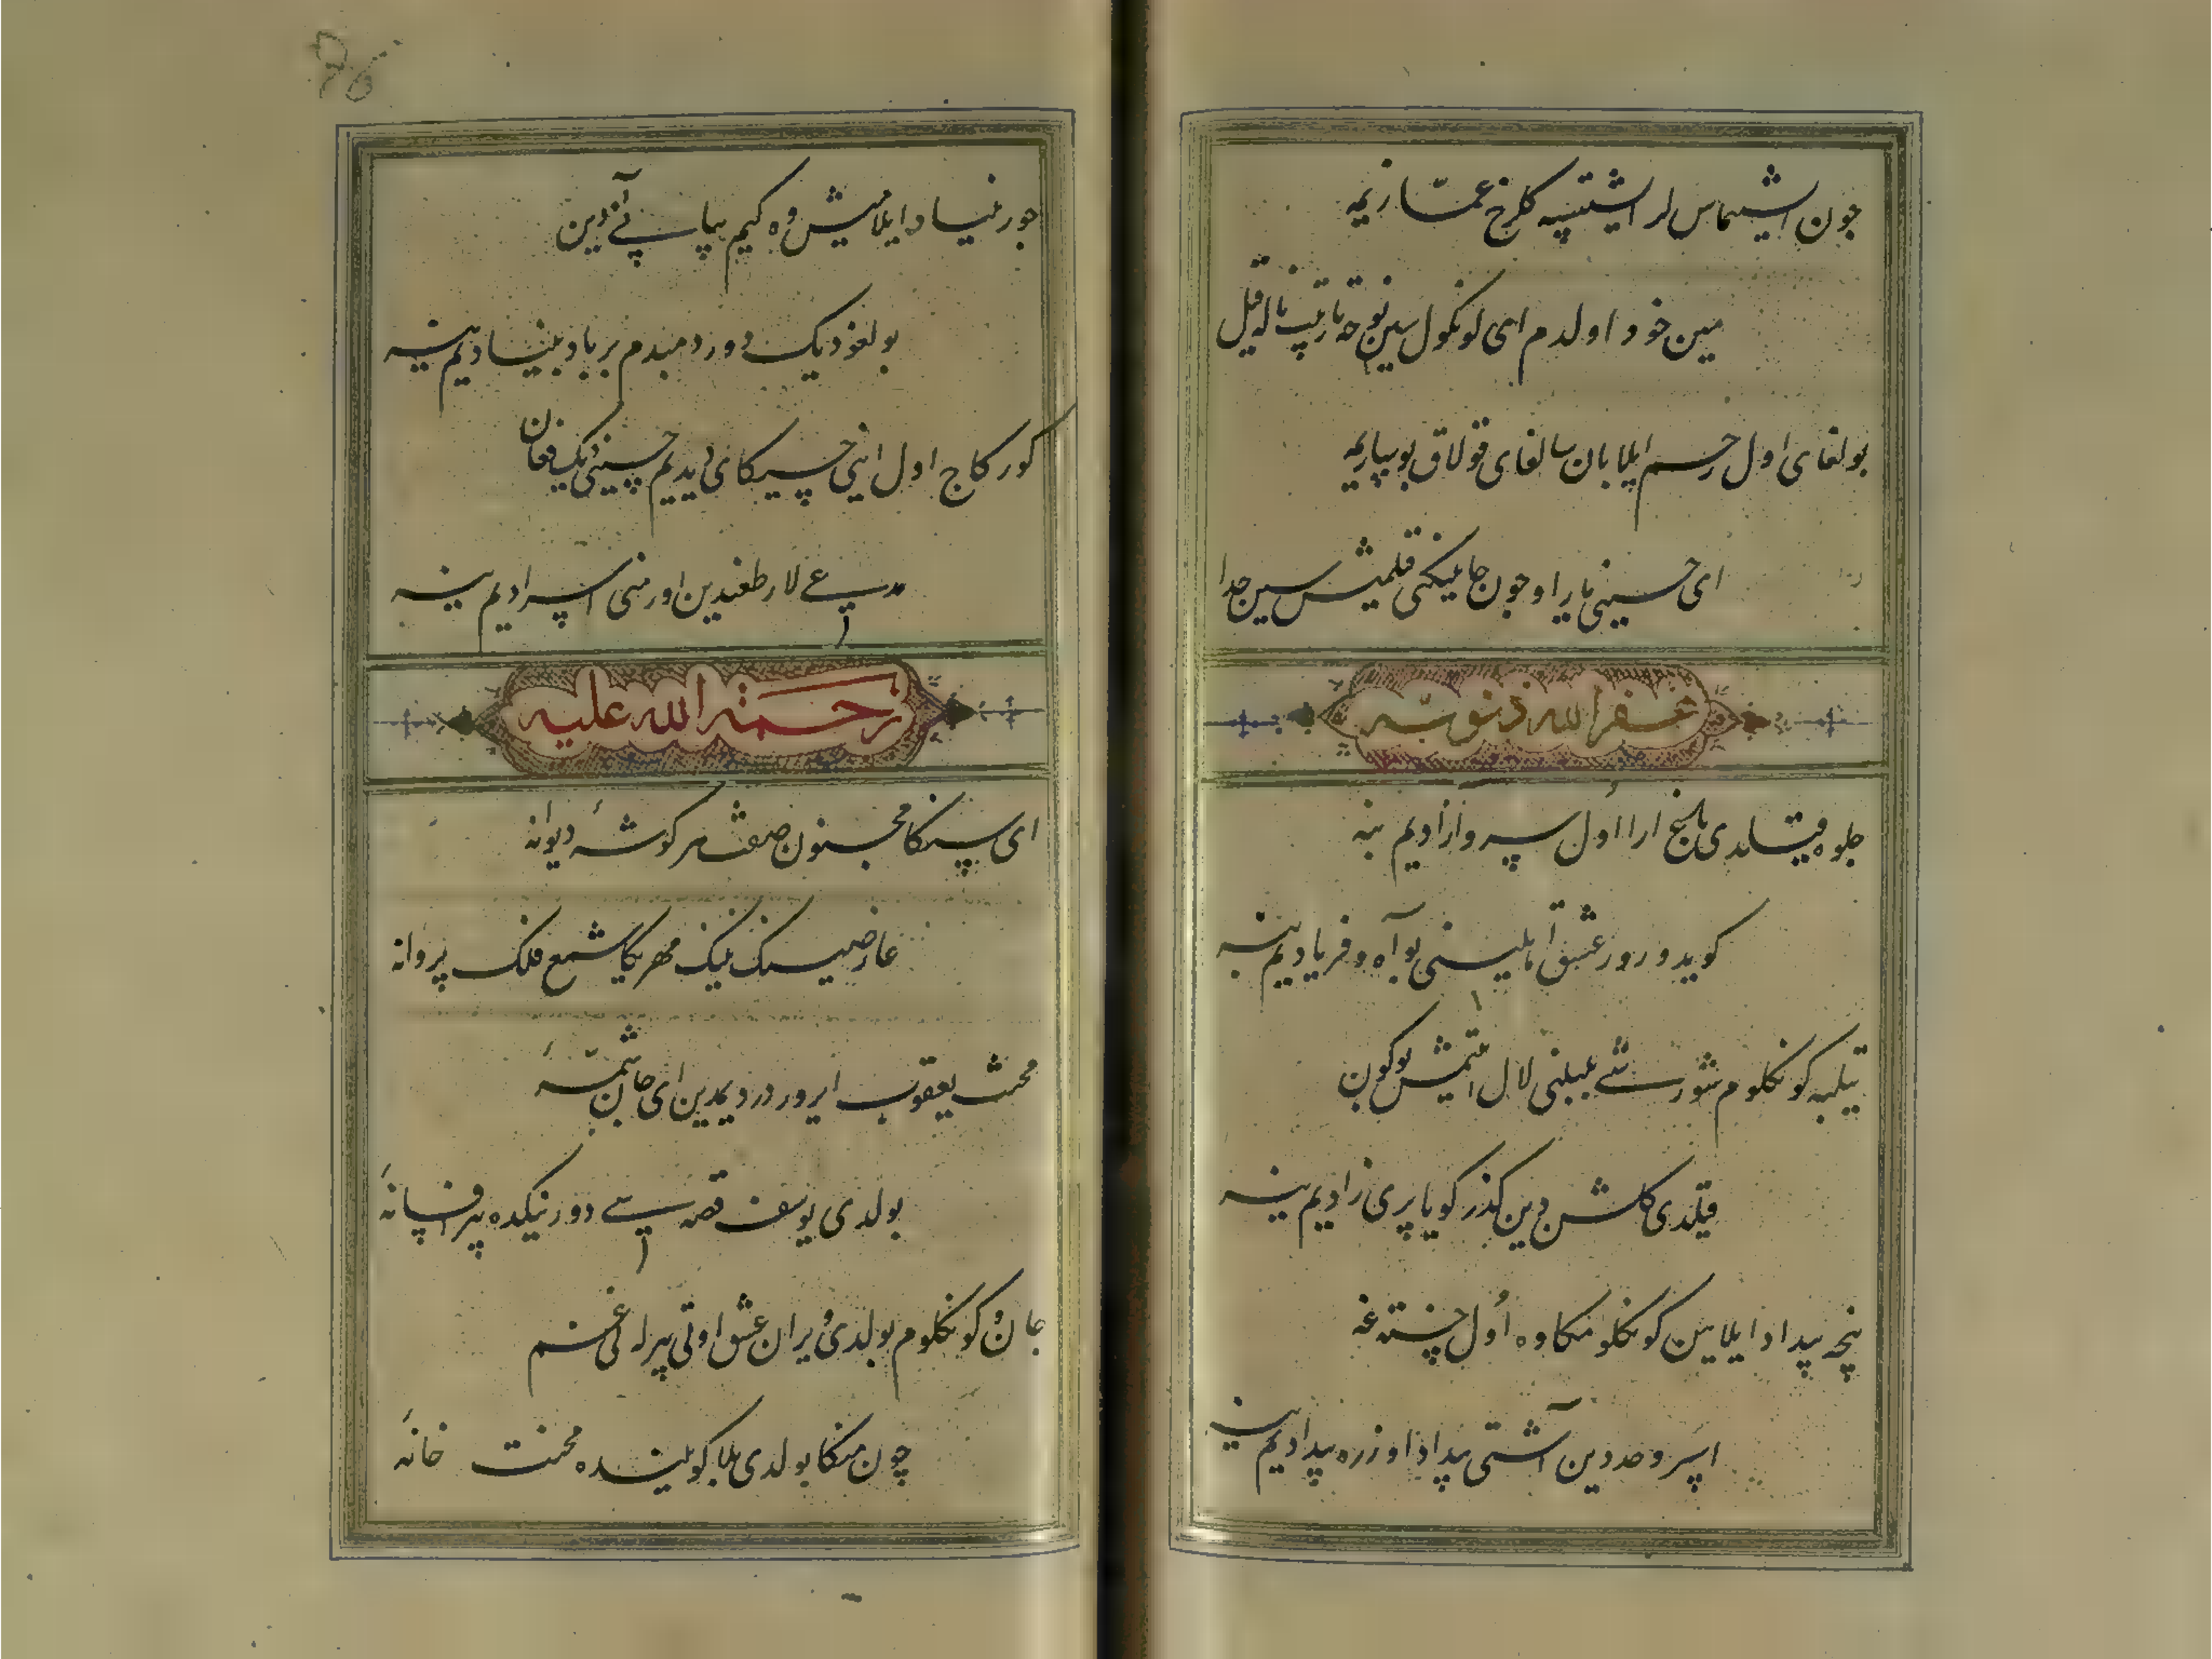 چون ایشیتماس لر ایشیتسه گلرخ غمازیمه
مین خود اولدم ای کونکول سین نوحه تارتیب ناله قیل
بولغای اول رحم ایلابان سالغای قولاق بو
ای حسینی یار اوچون جانینکنی قیلمیش سین جدا
غفرالله ذنوبه
جلوه قیلدی باغ ارا اول سرو آزادیم ینه
کویدورور عشق اهلینی بو آه و فریادیم ینه
تیلبه کونکلوم شورشی بلبلنی لال ایتمیش بوکون
قیلدی گلشن دین گذر کویا پری زادیم ینه
نیچه بیداد ایلایین کونکلومکا وه اول خسته غه
حددین آشتی بیداد اوزره بیدادیم ینه
جور بنیاد ایلامیش وه کیم بیاپی آهدین
بولغوسیدیک دور دمبدم برباد بنیادیم ینه
کورکاچ اول آی چیکای دیدیم حسینی دیک فغان
مدعی لار طعنیدین اورمنی اسرادیم ینه
رحمة الله علیه
ای سنکا مجنون صفت هر گوشه دیوانه
عارضینک نینک مهریکا شمع فلک پروانه
محنت یعقوب ایرور دردیمدین ای جان شمه
بولدی یوسف قصه سی دورنیکده بیر افسانه
جان و کونکلوم بولدی ویران عشق اوتی بیرلا غم
چون منکا بولدی بلا کوییده محنت خانه